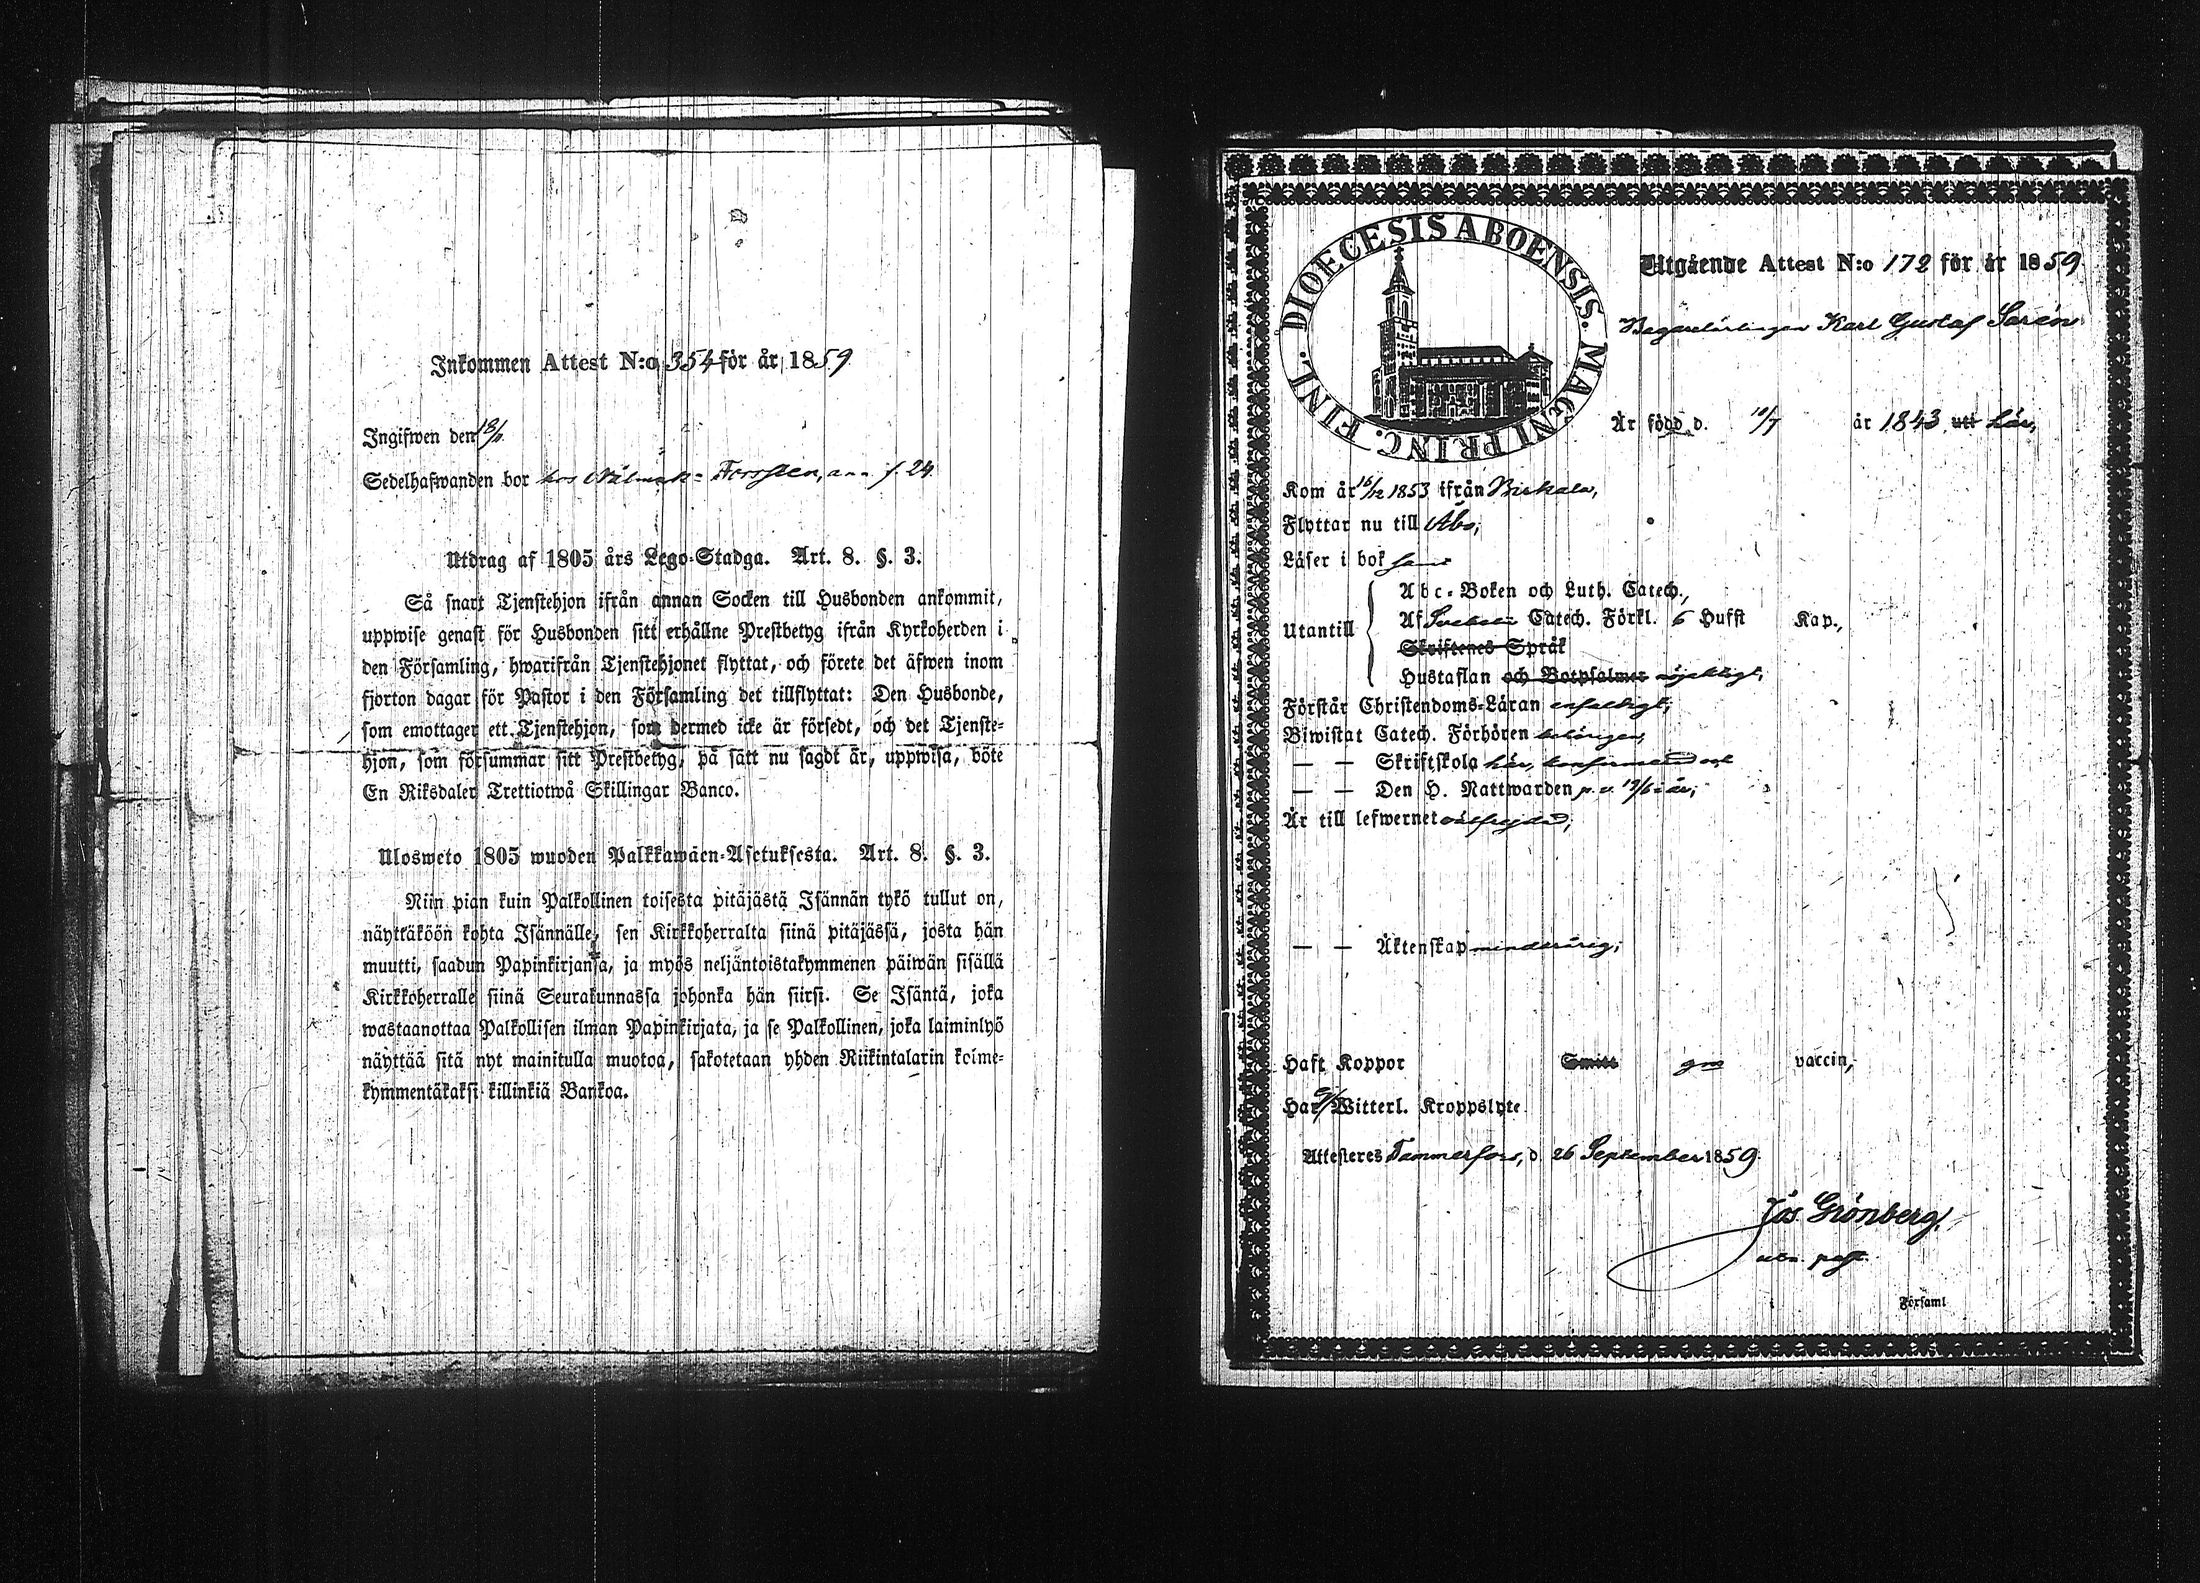 Inkommen Attest N:o 354 för år 1859
Ingifwen den 18/11
Sedelhafwanden bor hos Forssten, f. 24
Utdrag af 1805 års Lego-Stadga. Art. 8. §. 3.
Så snart Tjenstehjon ifrån annan Socken till Husbonden ankommit,
uppwise genast för Husbonden sitt erhållne Prestbetyg ifrån Kyrkoherden i
den Församling, hwarifrån Tjenstehjonet flyttat, och förete det äfwen inom
fjorton dagar för Pastor i den Församling det tillflyttat: Den Husbonde,
som emottager ett Tjenstehjon, som dermed icke är försedt, och det Tjenste-
hjon, som försummar sitt Prestbetyg, på sätt nu sagdt är, uppwisa, böte
En Riksdaler Trettiotwå Skillingar Banco.
Ulosweto 1805 wuoden Palkkawäen-Asetuksesta. Art. 8. §. 3.
Niin pian kuin Palkollinen toisesta pitäjästä Isännän tykö tullut on,
näyttäköön kohta Isännälle, sen Kirkkoherralta siinä pitäjässä, josta hän
muutti, saadun Papinkirjansa, ja myös neljäntoistakymmenen päiwän sisällä
Kirkkoherralle siinä Seurakunnassa johonka hän siirsi. Se Isäntä, joka
wastaanottaa Palkollisen ilman Papinkirjata, ja se Palkollinen, joka laiminlyö
näyttää sitä nyt mainitulla muotoa, sakotetaan yhden Riikintalarin kolme-
kymmentäkaksi killinkiä Bankoa.
DIOECESIS ABOENSIS. MAGNI PRINC. FINL.
Utgående Attest N:o 172 för år 1859
Bagarelärlingen Karl Gustaf Sarén
Är född d. 10/7 år 1843 utt här,
Kom år 16/12 1853 ifrån Birkala,
Flyttar nu till Åbo;
Läser i bok
Utantill
Abc-Boken och Luth. Catech.,
Af Svebelii Catech. Förkl. 6 Hufst Kap.,
Skriftenes Språk
Hustaflan och Botpsalmer nöjaktigt;
Förstår Christendoms-Läran enfaldigt;
Biwistat Catech. Förhören behörigen,
— — Skriftskola här, konfirmerad och
— — Den H. Nattwarden p. v. 19/6 i år;
Är till lefwernet välfrejdad;
— — Äktenskap minderårig;
Haft Koppor Smitt gm vaccin,
Har Witterl. Kroppslyte
Attesteres Tammerfors, d. 26 September 1859.
Jos. Grönberg,
adv. past.
Församl